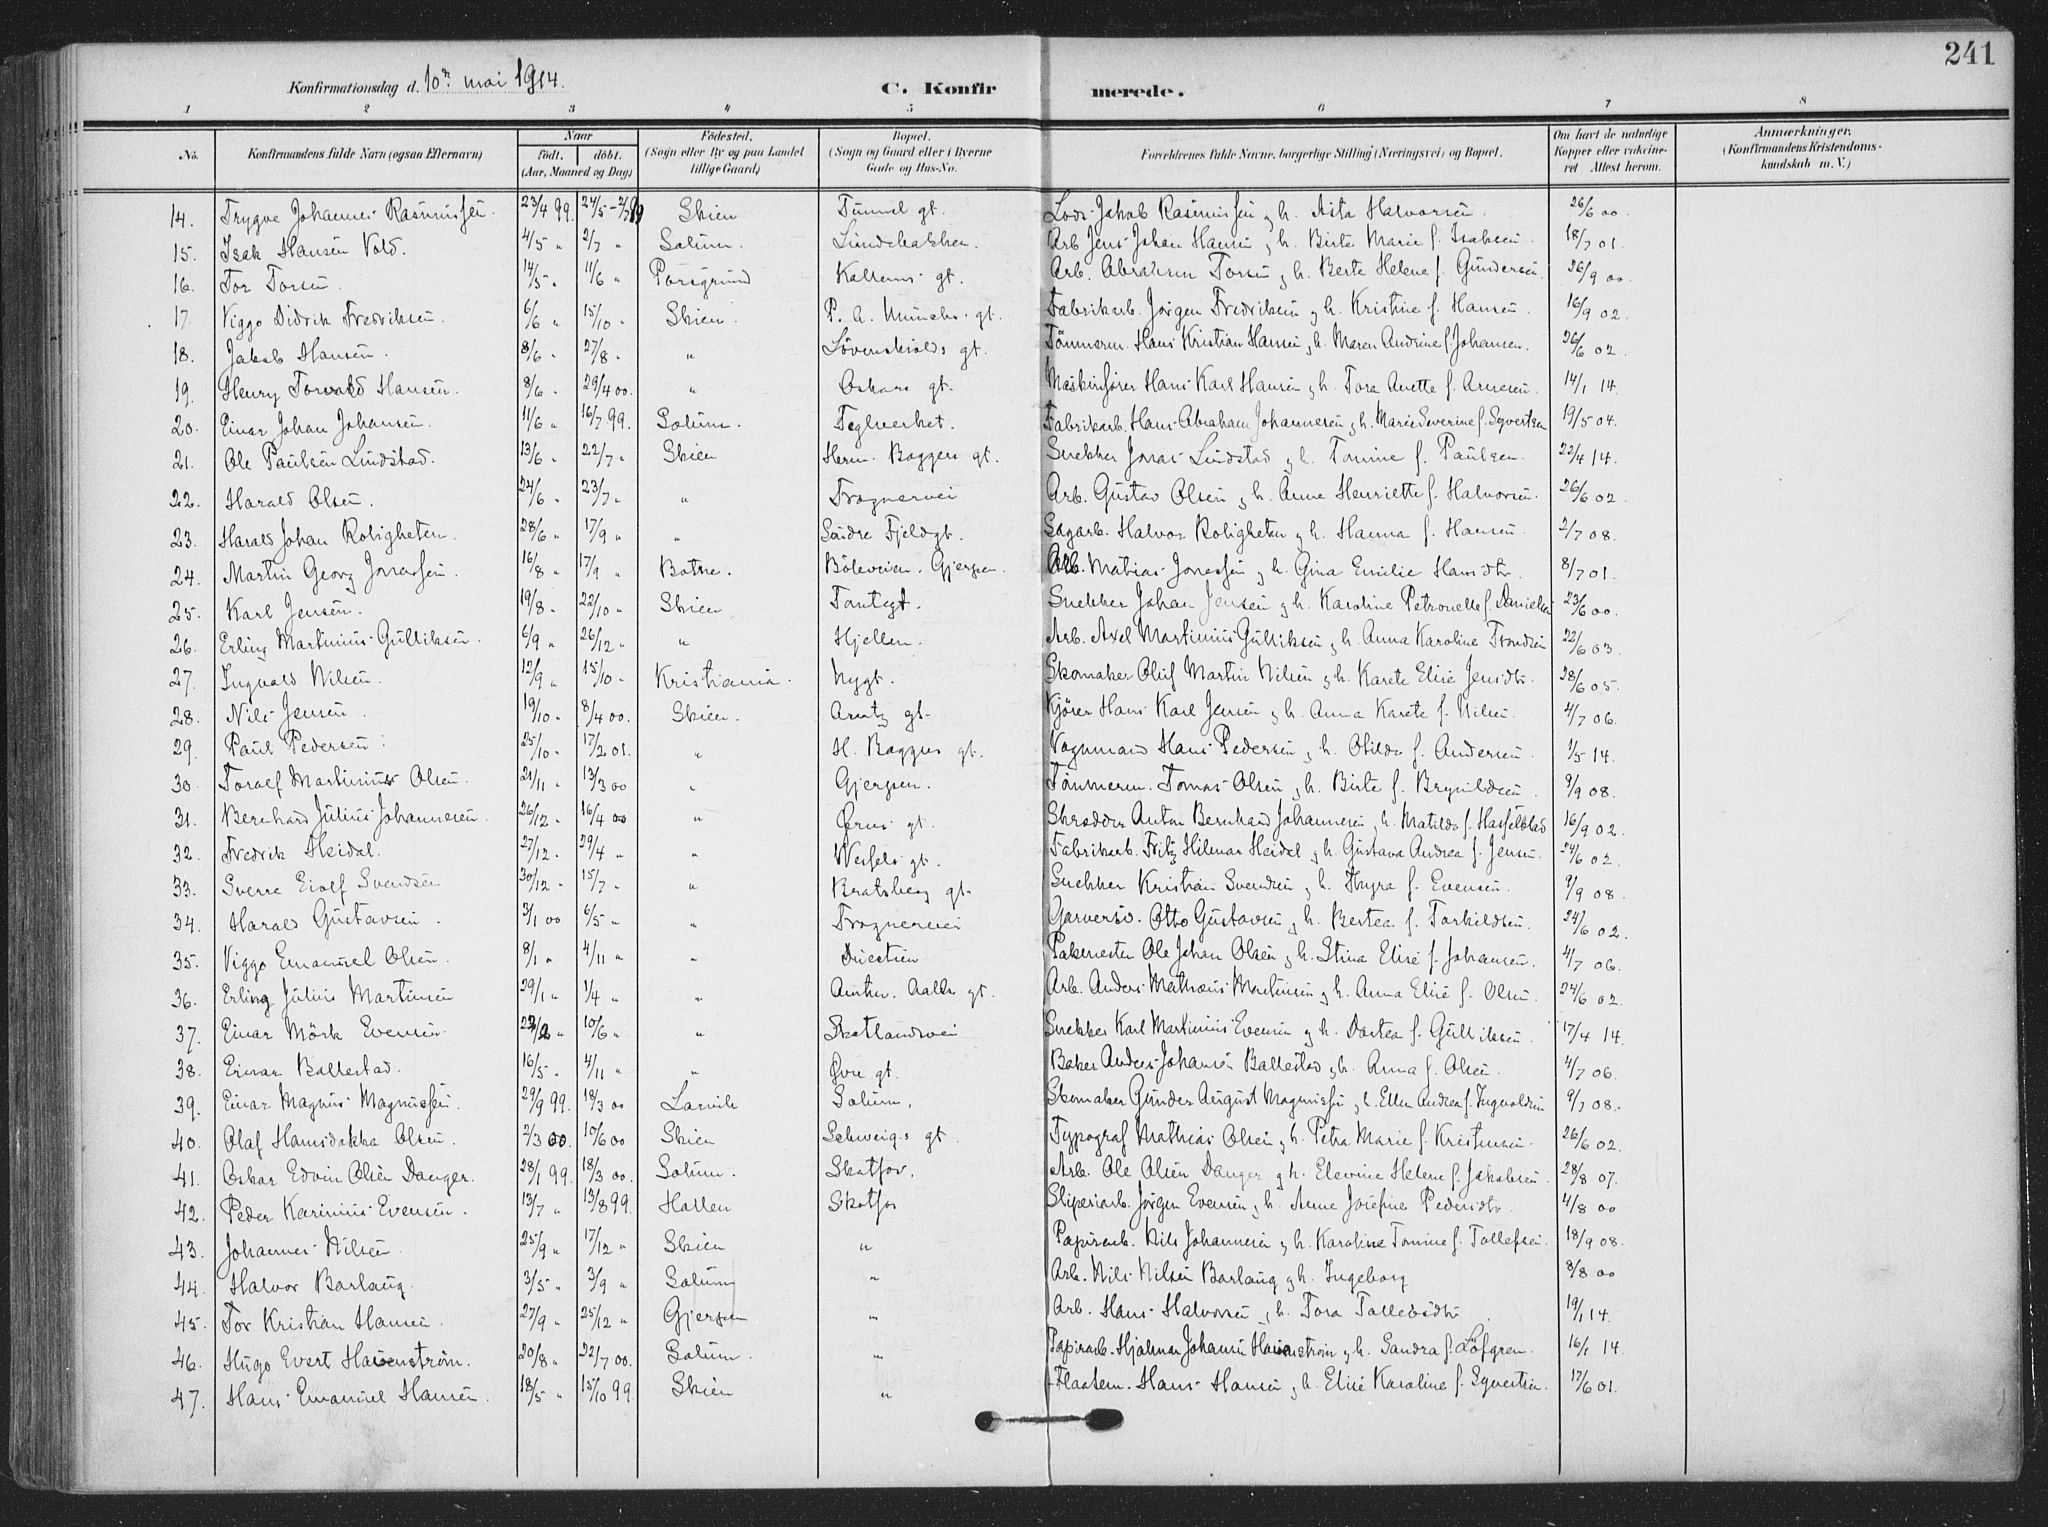 241
Konfirmationsdag d. 10de mai 1914. C. Konfirmerede.
1 2 3 4 5 6 7 8
No. Konfirmandens fulde Navn (ogsaa Efternavn) Naar født. døbt. (Aar, Maaned og Dag) Fødested. (Sogn eller By og paa Landet tillige Gaard) Bopæl. (Sogn og Gaard eller i Byerne Gade og Hus-No. Forældrenes fulde Navne, borgerlige Stilling (Næringsvei) og Bopæl. Om havt de naturlige Kopper eller vaccineret. Attest herom. Anmærkninger. (Konfirmandens Kristendomskundskab m. V.)
14. Trygve Johannes Rasmussen. 23/4 99. 24/5 - 2/7 99 Skien Tunnel gt. Lods Jakob Rasmussen g h. Asta Halvorsen. 26/6 00.
15. Isak Hansen Vold. 4/5 " 2/7 " Solum. Lundebakken. Arb. Jens Johan Hansen g h. Birte Marie f. Isaksen. 18/7 01.
16. Tor Torsen. 14/5 " 11/6 " Porsgrund gt. Arb. Abraham Torsen g h. Berte Helene f. Gundersen. 26/9 00.
17. Viggo Didrik Fredriksen. 6/6 " 15/10 " Skien P. A. Munchs gt. Fabrikarb. Jørgen Fredriksen g h. Kristine f. Hansen. 16/9 02.
18. Jakob Hansen. 8/6 " 27/8 " " Lövenskiolds gt. Tömmerm. Hans Kristian Hansen g h. Maren Andrine f. Johansen. 26/6 02.
19. Henry Torvald Hansen. 8/6 " 29/4 00. " Oskars gt. Maskinfører Hans Karl Hansen g h. Tora Anette f. Arnesen. 14/1 14.
20. Einar Johan Johansen. 11/6 " 16/7 99. Solum. Teglverket. Fabrikarb. Hans Abraham Johannesen g h. Marie Severine f. Syvertsen 19/5 04.
21. Ole Paulsen Lindstad. 13/6 " 22/7 " Skien Herm. Baggers gt. Snekker Jonas Lindstad g h. Tomine f. Paulsen. 22/4 14.
22. Harald Olsen. 24/6 " 23/7 " " Frognervei Arb. Gustav Olsen g h. Anne Henriette f. Halvorsen. 26/6 02.
23. Harald Johan Roligheten. 28/6 " 17/9 " " Söndre Fjeldgt. Sagarb. Halvor Roligheten g h. Hanna f. Hansen. 2/7 08.
24. Martin Georg Jonassen. 16/8 " 17/9 " Botne. Böleveien. Gjerpen. Arb. Matias Jonassen g h. Gina Emilie Hansdtr. 8/7 01.
25. Karl Jensen. 19/8 " 22/10 " Skien Tantegt. Snekker Johan Jensen g h. Karoline Petronelle f. Danielsen 23/6 00.
26. Erling Martinius Gulliksen. 6/9 " 26/12 " " Hjellen. Arb. Axel Martinius Gulliksen g h. Anna Karoline Trondsen 22/6 03.
27. Ingvald Nilsen. 12/9 " 15/10 " Kristiania. Nygt. Skomaker Oluf Martin Nilsen g h. Karete Elise Jensdtr. 28/6 05.
28. Nils Jensen. 19/10 " 8/4 00. Skien. Arntz gt. Kjörer Hans Karl Jensen g h. Anna Karete f. Nilsen. 4/7 06.
29. Paul Pedersen. 25/10 " 17/2 01. " H. Baggers gt. Vognmand Hans Pedersen g h. Otilda f. Andersen. 1/5 14.
30. Toralf Martinius Olsen. 21/11 " 13/3 00 " Gjerpen. Tömmerm. Tomas Olsen g h. Birte f. Brynildsen. 9/9 08.
31. Bernhard Julius Johannesen. 26/12 " 16/4 00 " gt. Skrædder Anton Bernhard Johannesen g h. Matilde f. Hasselblad 16/9 02.
32. Fredrik Heidal. 27/12 " 29/4 " " Wessels gt. Fabrikarb. Fritz Hilmar Heidal g h. Gustava Andrea f. Jensen. 24/6 02.
33. Sverre Eiolf Svendsen 30/12 " 15/7 " " Bratsberg gt. Snekker Kristian Svendsen g h. Thyra f. Evensen. 9/9 08.
34. Harald Gustavsen. 3/1 00 6/5 " " Frognervei Garversv. Otto Gustavsen g h. Bertea f. Torkildsen. 24/6 02.
35. Viggo Emanuel Olsen. 8/1 " 4/11 " " Duestien Pakmester Ole Johan Olsen g h. Stina Elise f. Johansen. 4/7 06.
36. Erling Julius Martinsen 29/1 " 1/4 " " Amtm. Aalls gt. Arb. Anders Mathæus Martinsen g h. Anna Elise f. Olsen. 24/6 02.
37. Einar Mörk Evensen. 22/2 " 10/6 " " Skotlandsvei Snekker Karl Martinius Evensen g h. Dortea f. Gulliksen. 17/4 14.
38. Einar Ballestad. 16/5 " 4/11 " " Øvre gt. Baker Anders Johansen Ballestad g h. Anna f. Olsen. 4/7 06.
39. Einar Magnus Magnussen. 29/9 99. 18/3 00 Larvik Solum. Skomaker Gunder August Magnussen g h. Ellen Andrea f. Ingvoldsen 9/7 08.
40. Olaf Hansdakka Olsen. 2/3 00. 10/6 00 Skien Schweigs gt. Typograf Mathias Olsen g h. Petra Marie f. Kristensen. 26/6 02.
41. Oskar Edvin Olsen Danger. 28/1 99. 18/3 00. Solum. Skotfos. Arb. Ole Olsen Danger g h. Elevine Helene f. Jakobsen 28/8 07.
42. Peder Karinius Evensen. 13/7 " 13/8 99. Hollen Skotfos Sliperiarb. Jörgen Evensen g h. Anne Josefine Pedersdtr. 4/8 00
43. Johannes Nilsen. 25/9 " 17/12 " Skien " Papirarb. Nils Johannesen g h. Karoline Tomine f. Tollefsen. 18/9 08.
44. Halvor Barlaug. 3/5 " 3/9 " Solum " Arb. Nils Nilsen Barlaug g h. Ingeborg 8/8 00
45. Tor Kristian Hansen. 27/9 " 25/12 " Gjerpen " Arb. Hans Halvorsen g h. Tora Tollefsdtr 19/1 14.
46. Hugo Evert Havenström. 20/8 " 22/7 00. Solum. " Papirarb. Hjalmar Johansen Havenström g h. Sandra f. Löfgren. 16/1 14.
47. Hans Emanuel Hansen. 18/5 " 15/10 99. Skien " Flaatem. Hans Hansen g h. Elise Karoline f. Syvertsen. 17/6 01.